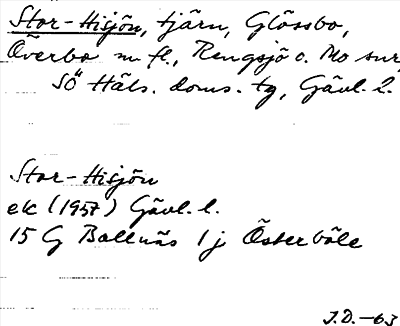 Stor-Hisjön, tjärn, Glössbo,
Överbo m. fl., Rengsjö o. Mo snr,
SÖ Häls. doms. tg, Gävl. l.
Stor-Hisjön
ek (1957) Gävl. l.
15 G Bollnäs 1 j Österböle
J.D. -63